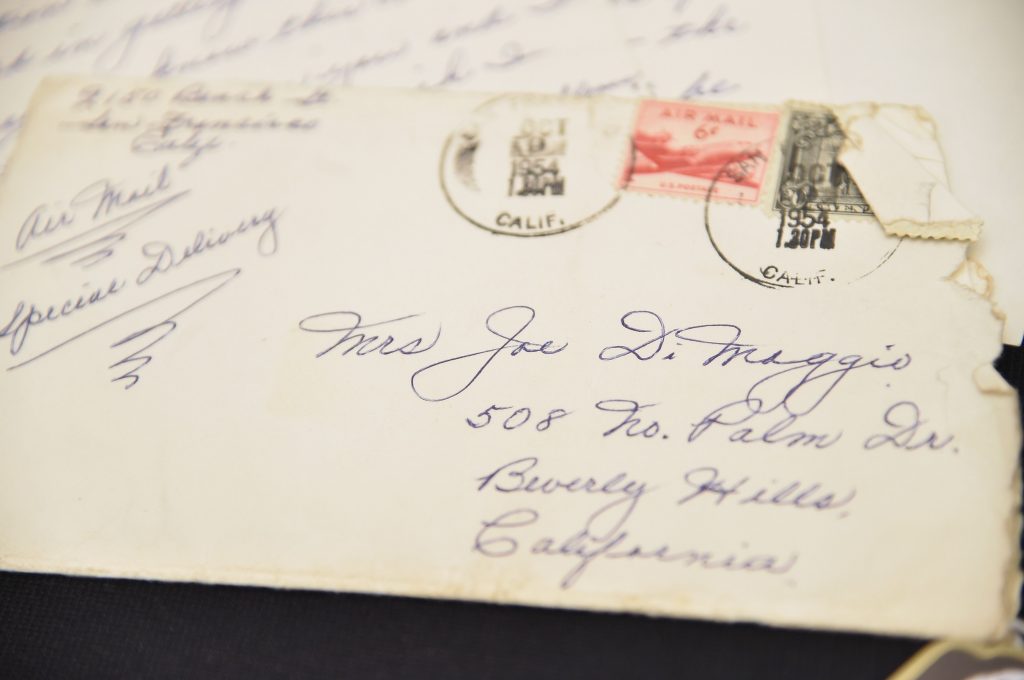 know this
you and I
2150 Beach St
San Francisco
Calif.
Air Mail
Special Delivery
OCT
1954
1.30PM
CALIF.
AIR MAIL
6¢
U.S. POSTAGE
SAN
OCT
1954
1.30PM
CALIF.
Mrs Joe DiMaggio
508 No. Palm Dr.
Beverly Hills,
California